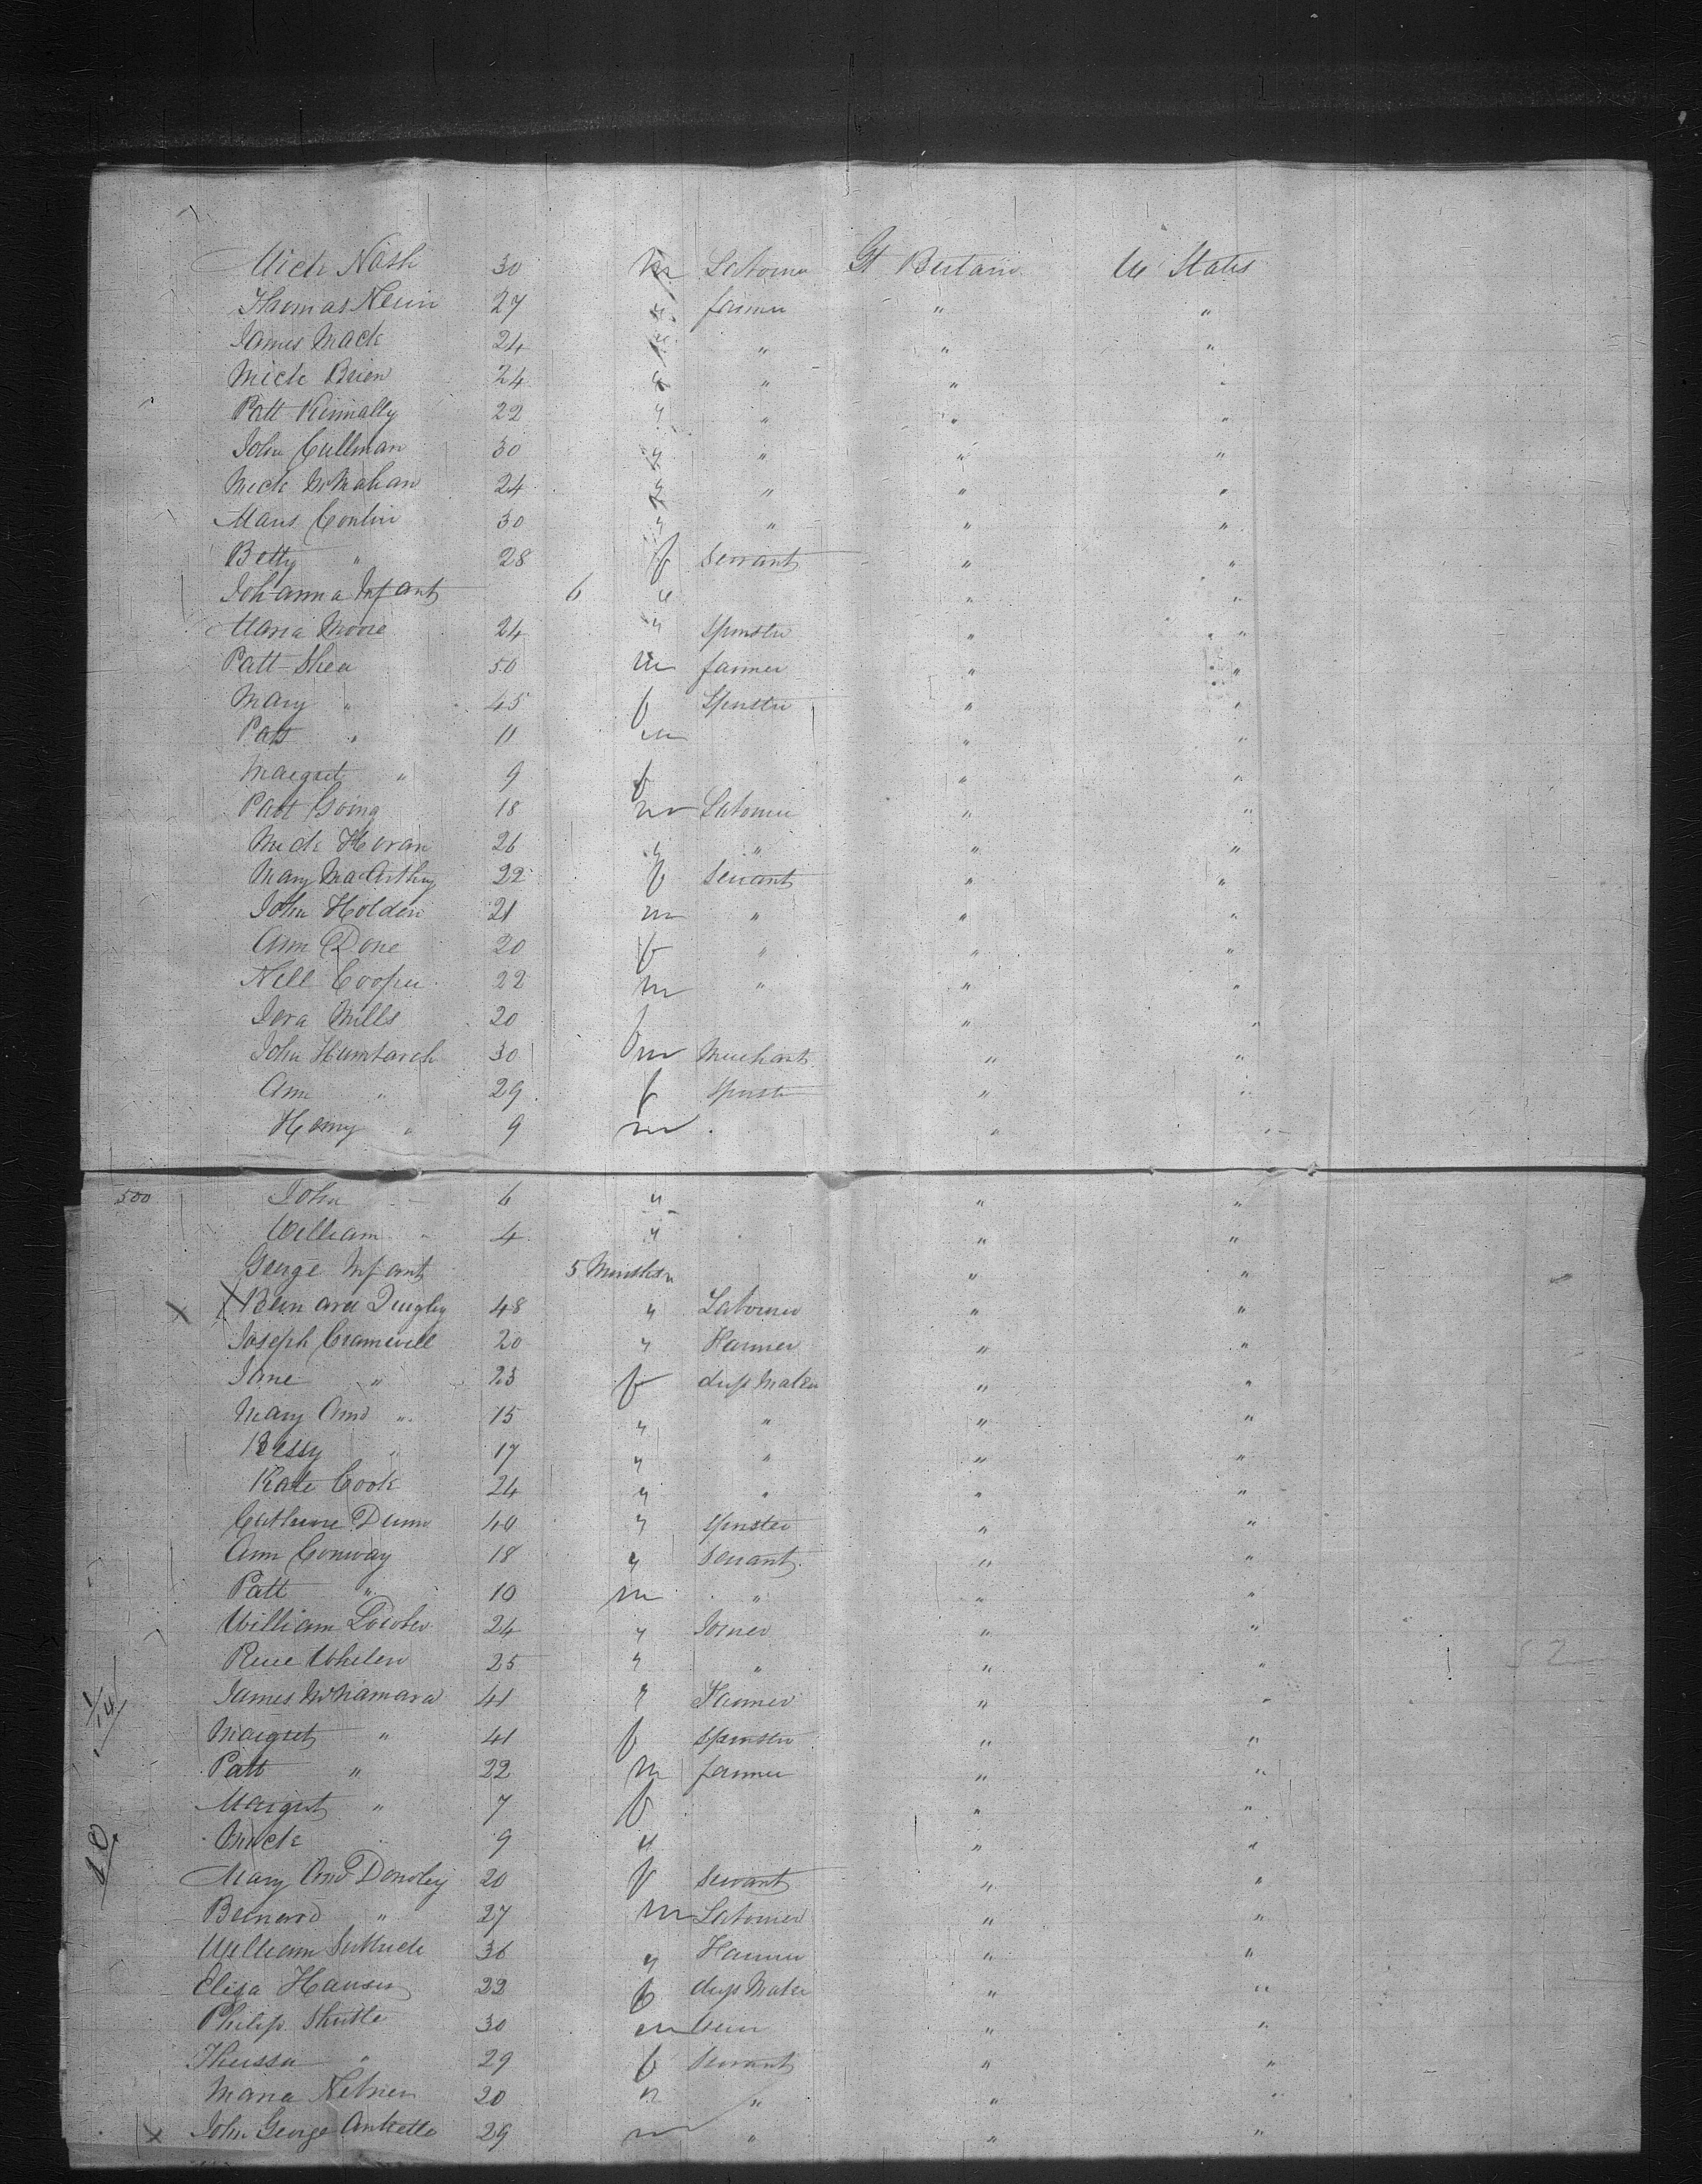 Mich Nash 30 m Laborer Gt Britain U States
Thomas Nevin 27 " farmer " "
James Mack 24 " " " "
Mich Brien 24 " " " "
Patt Kinnally 22 " " " "
John Cullinan 30 " " " "
Mick McMahan 24 " " " "
Mans Conlin 30 " " " "
Betty " 28 f Servant " "
Johanna Infant 6 " " "
Maria Moore 24 " Spinster " "
Patt Shea 50 m farmer " "
Mary " 45 f Spinster " "
Patt " 11 m " "
Margret " 9 f " "
Patt Going 18 m Laborer " "
Mick Horan 26 " " " "
Mary MacArthy 22 f Servant " "
John Holden 21 m " " "
Ann Done 20 f " " "
Nell Cooper 22 m " " "
Mills 20 f " "
John 30 m Merchant " "
Ann " 29 f Spinst " "
Henry " 9 m " "
500 John 6 " " "
William " 4 " " "
George Infant 5 Months " " "
X Bernard Quigley 48 " Laborer " "
Joseph 20 " Farmer " "
Jane " 23 f dress Maker " "
Mary Ann " 15 " " " "
Bessy " 17 " " " "
Kate Cook 24 " " " "
Cathrine Dunn 40 " Spinster " "
Ann Conway 18 " Servant " "
Patt " 10 m " " "
William 24 " Joiner " "
Whelen 25 " " " "
James McNamara 41 " Farmer " "
Margret " 41 f Spinster " "
Patt " 22 m farmer " "
Margret " 7 f " "
Mick 9 " " "
Mary Ann Donoley 20 f Servant " "
Bernard " 27 m Laborer " "
William 36 " Farmer " "
Eliza Hansen 22 f dress Maker " "
Philip Shuttle 30 m " "
" 29 f Servant " "
Maria 20 " " " "
X John George 29 m " " "